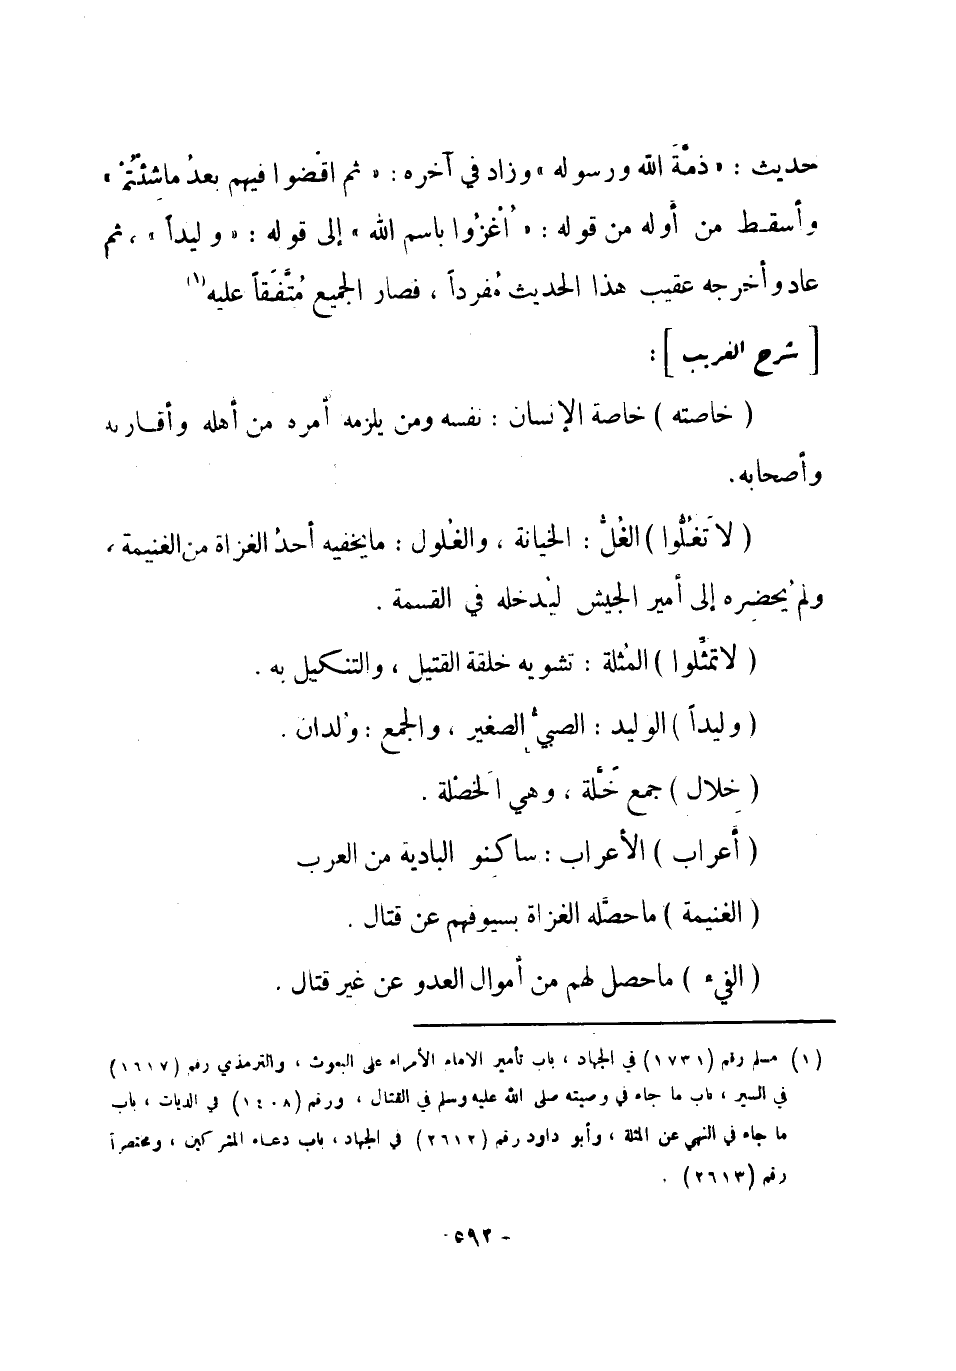 حديث : « ذمَّةَ الله ورسوله » وزاد في آخره : « ثم اقضوا فيهم بعدُ ماشِئتُمْ »
وأسقط من أوله من قوله : « اُغْزُوا باسم الله » إلى قوله : « وليداً » ، ثم
عاد وأخرجه عقيب هذا الحديث مُفرداً ، فصار الجميع مُتَّفَقاً عليه(١)
[ شرح الغريب ] :
( خاصته ) خاصة الإنسان : نفسه ومن يلزمه أمره من أهله وأقاربه
وأصحابه .
( لاَ تَغُلُّوا ) الغُلُّ : الخيانة ، والغُلول : مايخفيه أحدُ الغزاة من الغنيمة ،
ولم يُحضِره إلى أمير الجيش ليُدخله في القسمة .
( لاتمثِّلوا ) المُثلة : تشويه خلقة القتيل ، والتنكيل به .
( وليداً ) الوليد : الصبيُّ الصغير ، والجمع : وُلدان .
( خِلال ) جمع خَلَّة ، وهي الَخصْلة .
( أَعراب ) الأعراب : ساكِنو البادية من العرب
( الغنيمة ) ماحصَّله الغزاة بسيوفهم عن قتال .
( الفيء ) ماحصل لهم من أموال العدو عن غير قتال .
(١) مسلم رقم (١٧٣١) في الجهاد ، باب تأمير الامام الأمراء على البعوث ، والترمذي رقم (١٦١٧)
في السير ، باب ما جاء في وصيته صلى الله عليه وسلم في القتال ، ورقم (١٤٠٨) في الديات ، باب
ما جاء في النهي عن المثلة ، وأبو داود رقم (٢٦١٢) في الجهاد ، باب دعاء المشركين ، ومختصراً
رقم (٢٦١٣) .
- ٥٩٢ -